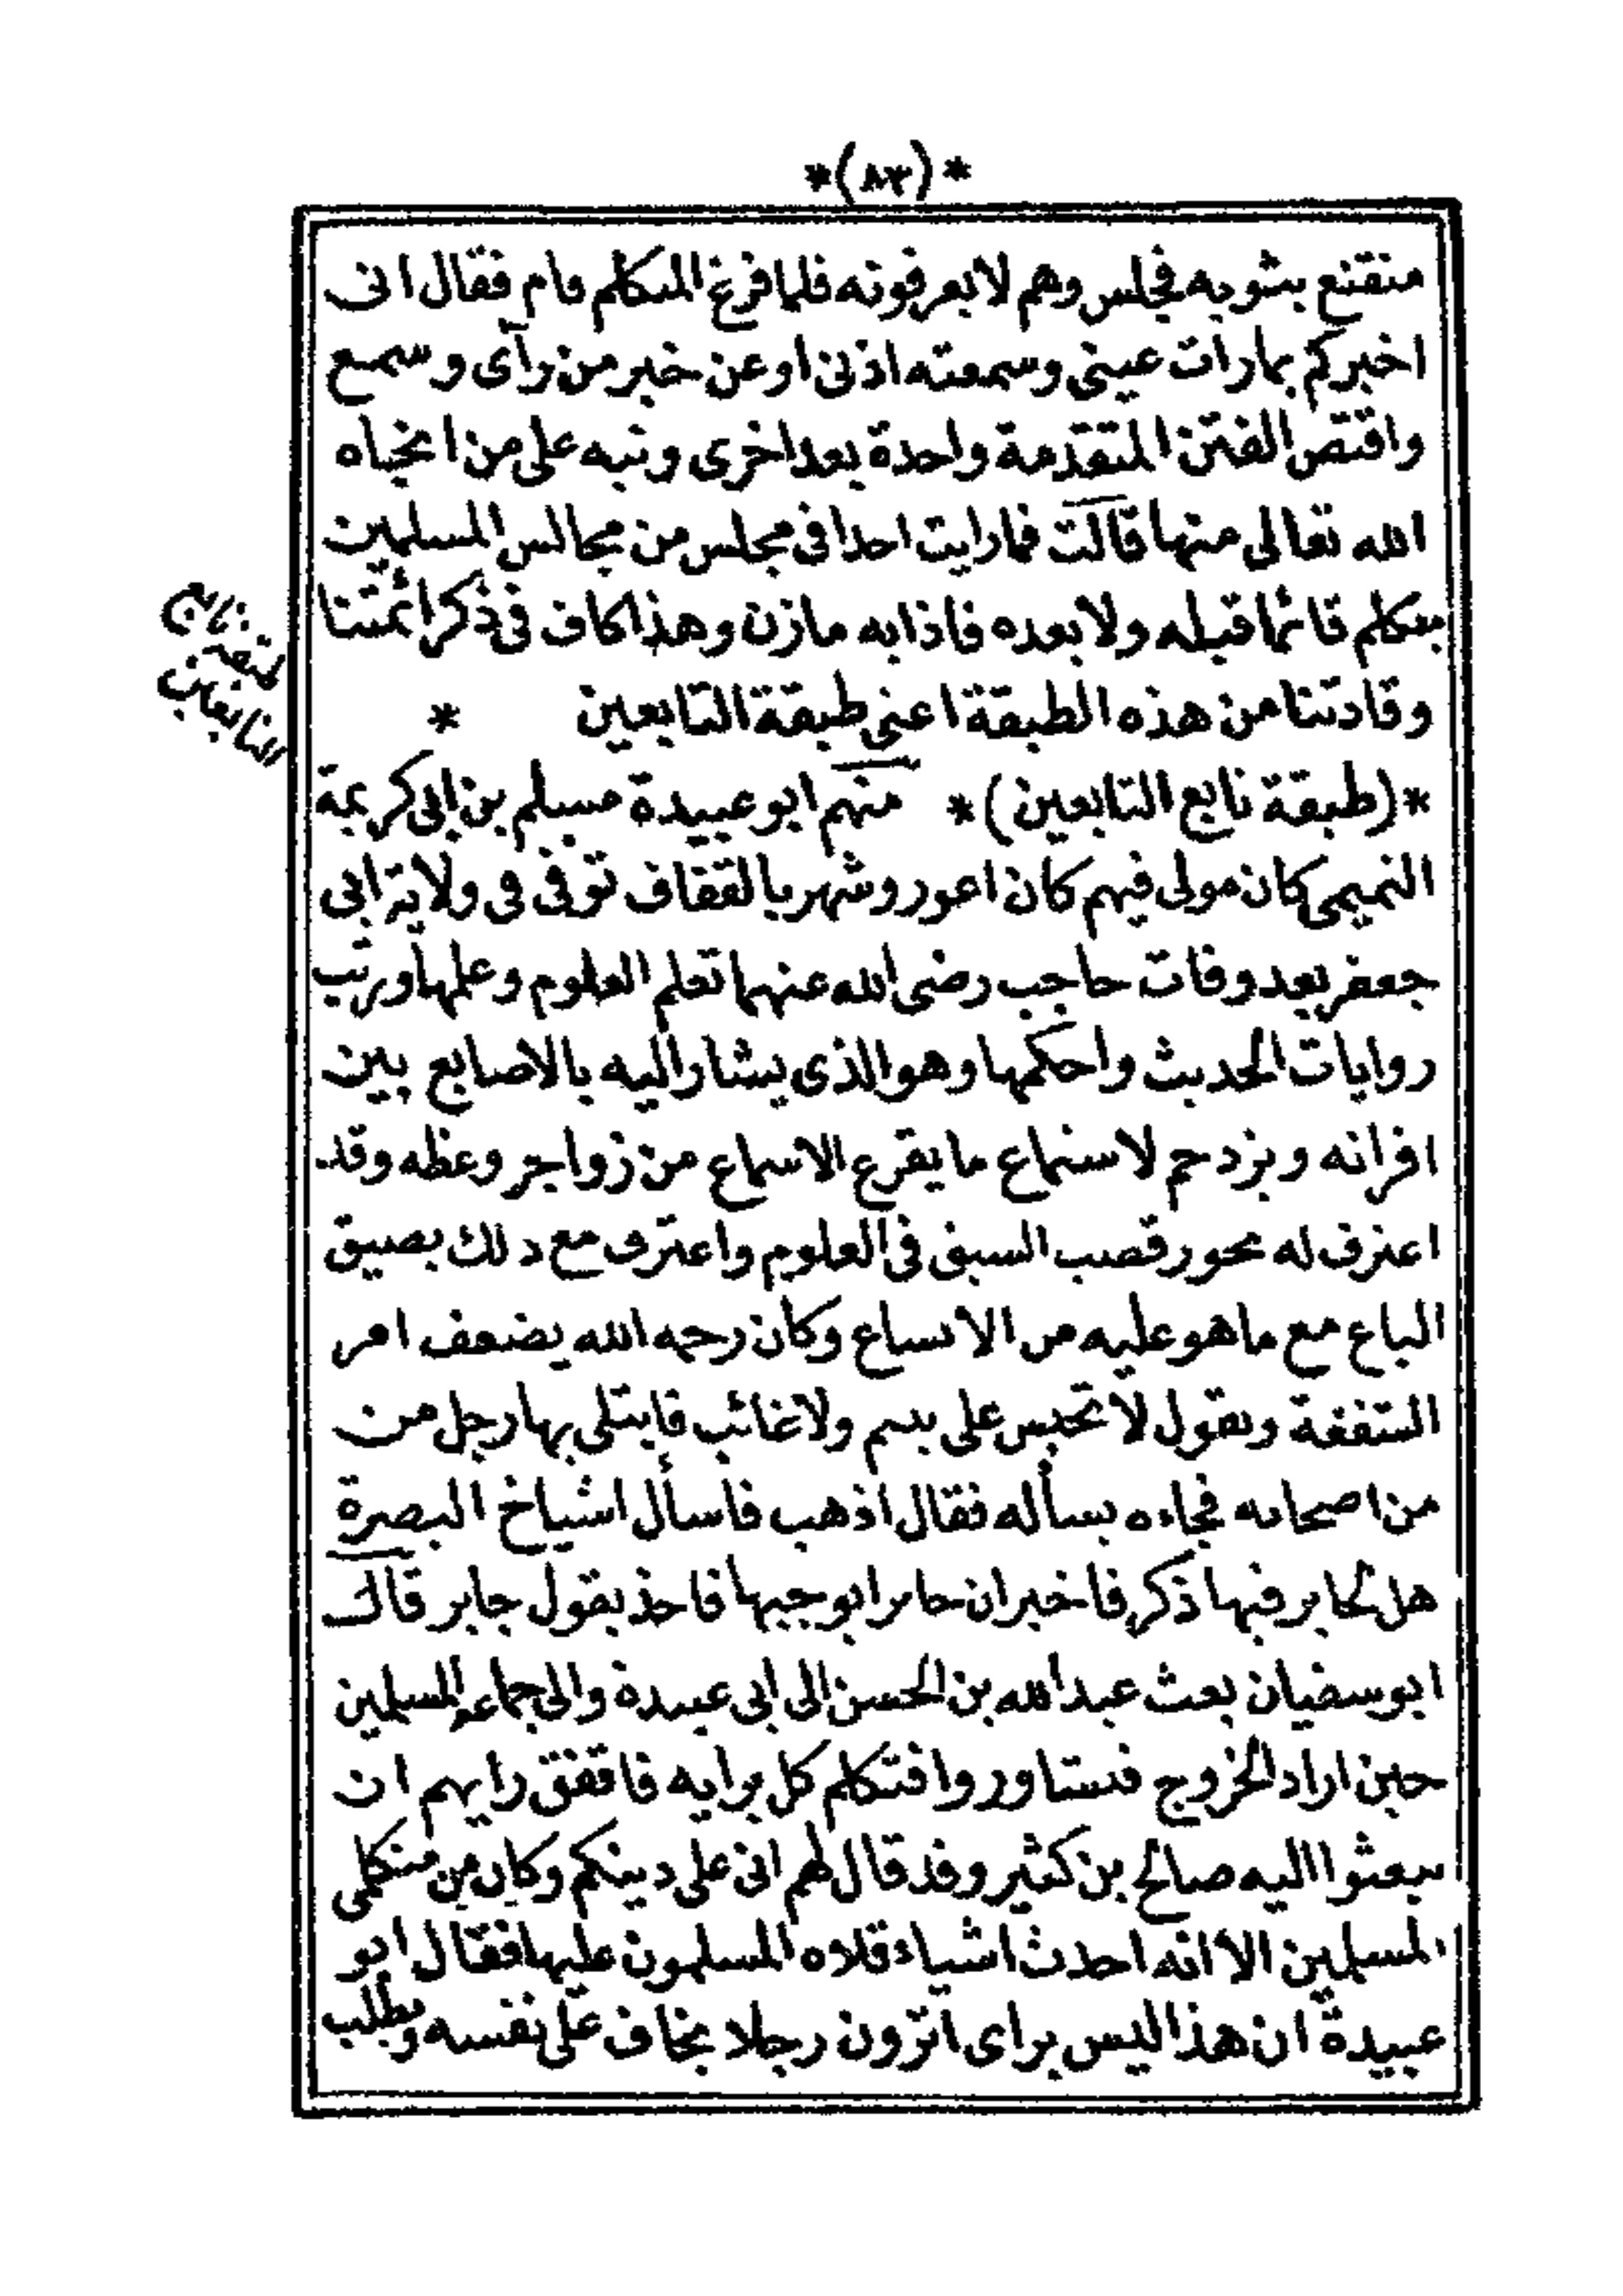 *(٨٣)*
متقنع بثوبه فجلس وهم لا يعرفونه فلما فرغ المتكلم قام فقال انى
اخبركم بمارات عينى وسمعته اذنى او عن خبر من رآى وسمع
واقتص الفتن المتقدمة واحدة بعد اخرى ونبه على من انجاه
الله تعالى منها قالت فما رايت احدا فى مجلس من مجالس المسلمين
يتكلم قائما قبله ولا بعده فاذا به مازن وهذا كاف فى ذكر ائمتنا
وقادتنا من هذه الطبقة اعنى طبقة التابعين *
طبقة تابع
التابعين
*(طبقة تابع التابعين)* منهم ابو عبيدة مسلم بن ابى كريمة
التميمى كان مولى فيهم كان اعور وشهر بالقفاف توفى فى ولاية ابى
جعفر بعد وفات حاجب رضى الله عنهما تعلم العلوم وعلمها ورتب
روايات الحديث واحكمها وهو الذى يشار اليه بالاصابع بين
اقرانه ويزدحم لاستماع ما يقرع الاسماع من زواجر وعظه وقد
اعترف له بحوز قصب السبق فى العلوم واعترف مع ذلك بضيق
الباع مع ما هو عليه من الاتساع وكان رحمه الله يضعف امر
الشفعة ويقول لا تحبس على يتيم ولا غائب فابتلى بها رجل من
من اصحابه فجاءه يسأله فقال اذهب فاسأل اشياخ البصرة
هل لجابر فيها ذكر فاخبر ان جابرا يوجبها فاخذ بقول جابر قال
ابو سفيان بعث عبد الله بن الحسن الى ابى عبيدة والى جماعة المسلمين
حين اراد الخروج فتشاوروا فتكلم كل برايه فاتفق رايهم ان
يبعثوا اليه صالح بن كثير وقد قال لهم انى على دينكم وكان من متكلمى
المسلمين الا انه احدث اشياء قلاه المسلمون عليها فقال ابو
عبيدة ان هذا ليس براى اترون رجلا يخاف على نفسه ويطلب